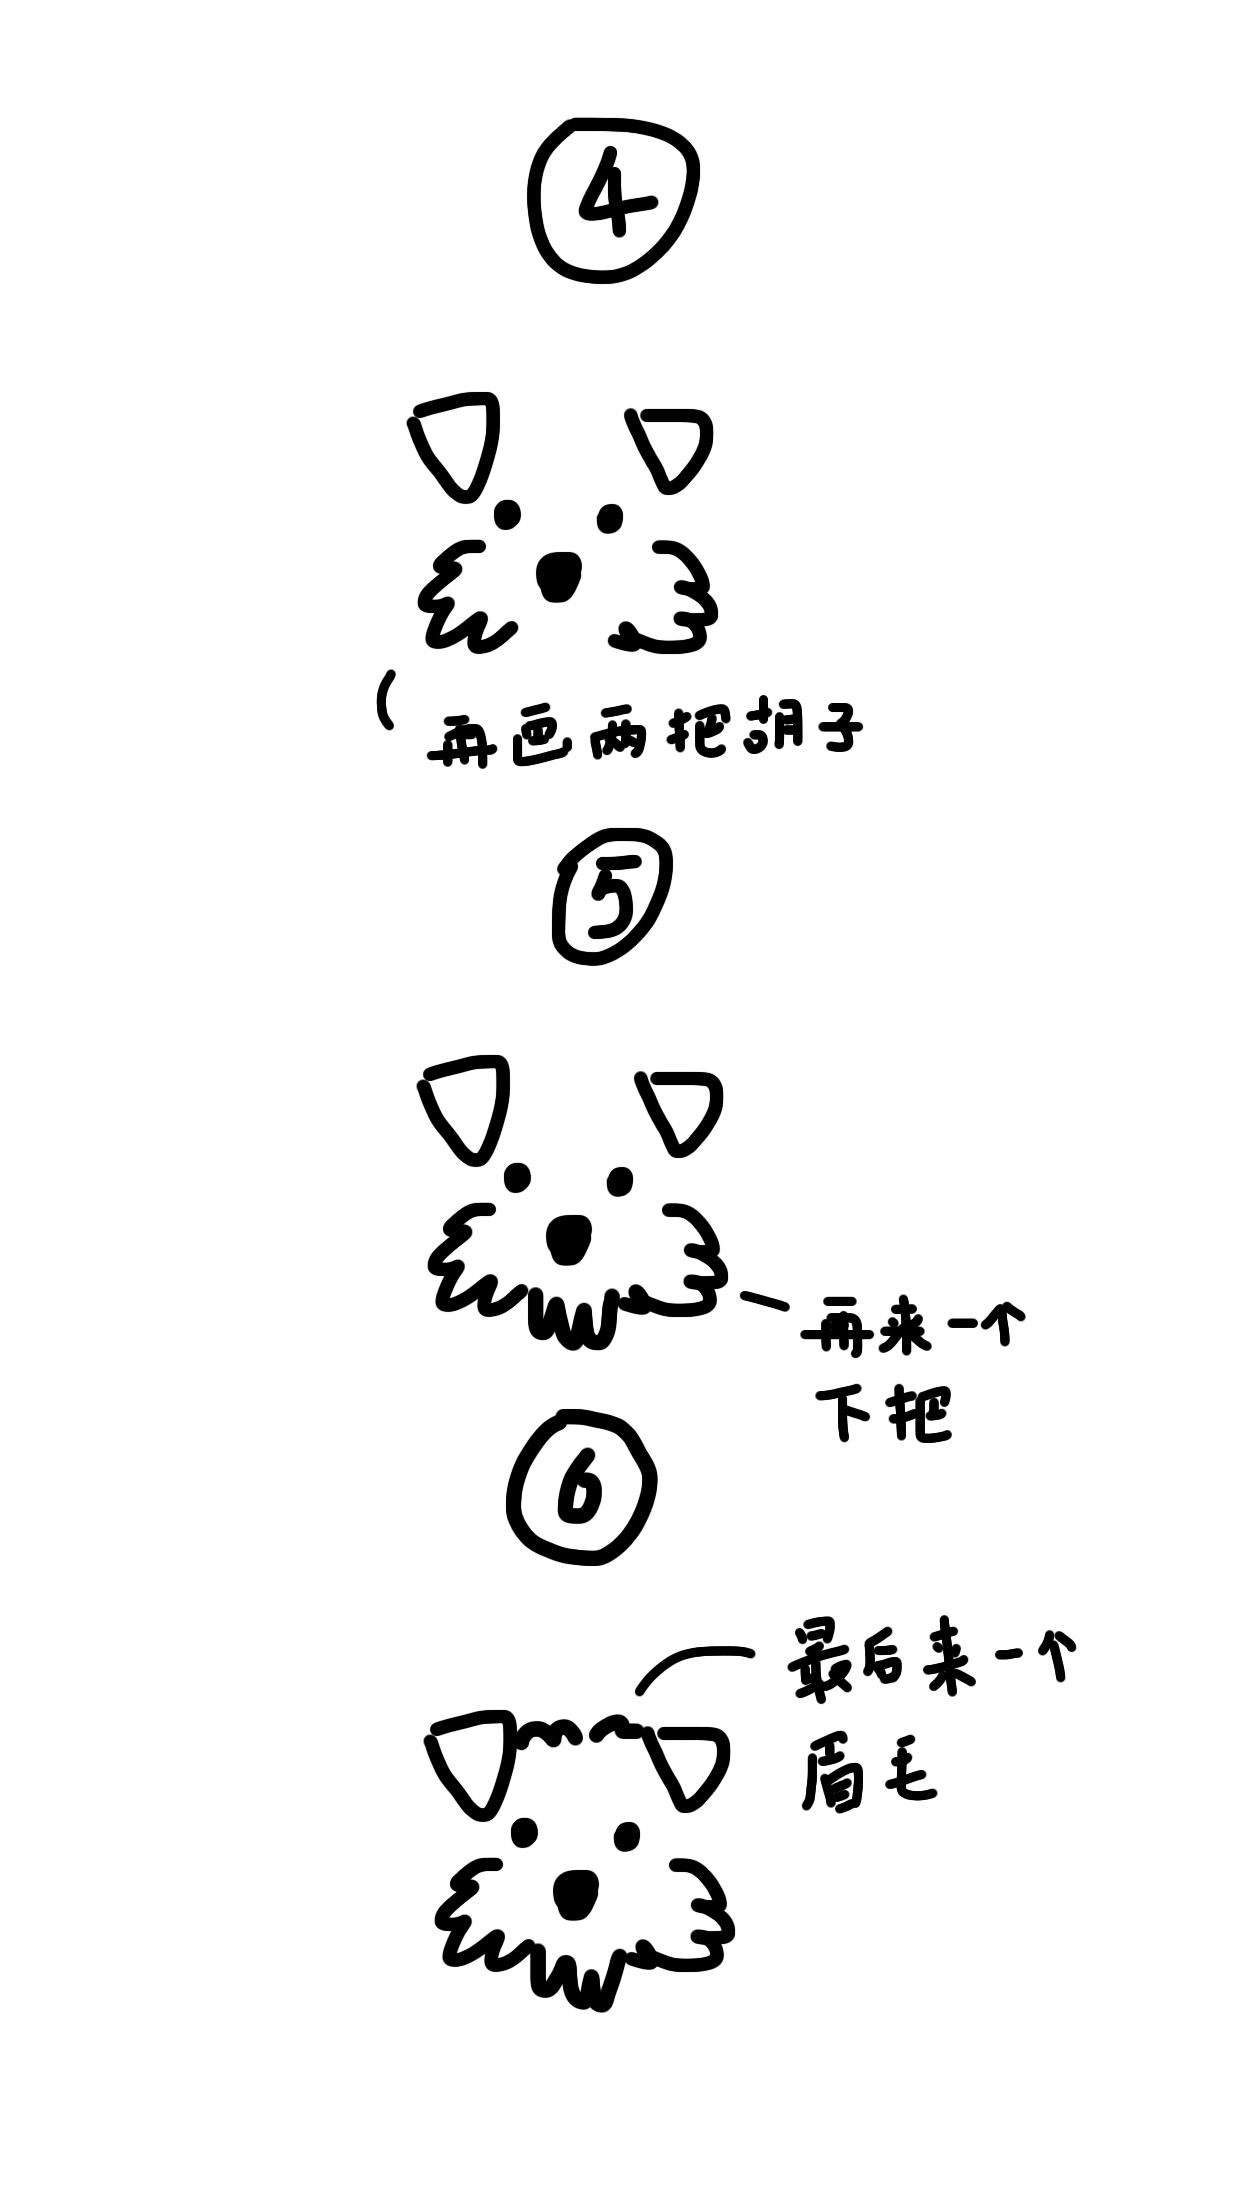 4
再画两把胡子
5
再来一个
下把
6
最后来一个
眉毛